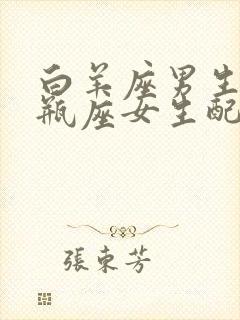 白羊座男生
瓶座女生配
張東芳